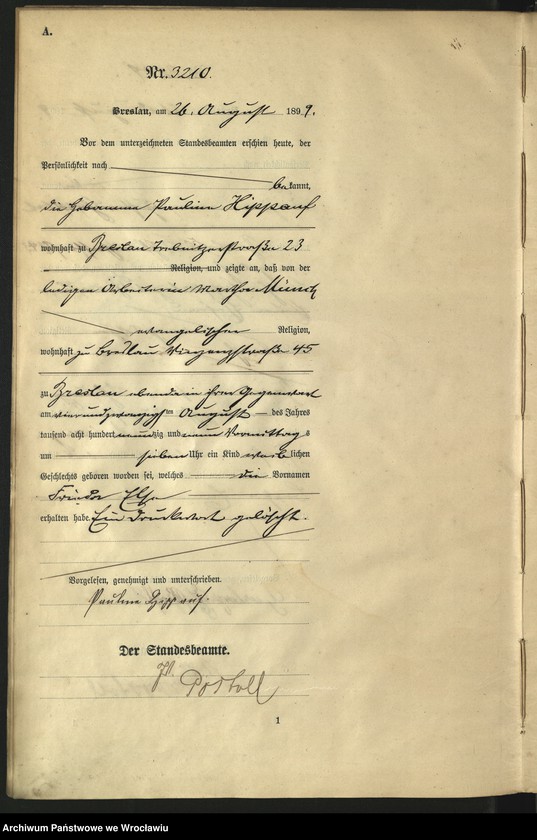 A.
Nr. 3210.
Breslau, am 26. August 1899.
Vor dem unterzeichneten Standesbeamten erschien heute, der
Persönlichkeit nach
bekannt,
die Hebamme Pauline Hippauf
wohnhaft zu Breslau Trebnitzerstraße 23
Religion, und zeigte an, daß von der
ledigen Arbeiterin Martha
evangelischer Religion,
wohnhaft zu Breslau Vinzenzstraße 45
zu Breslau ebenda in ihrer Gegenwart
am vierundzwanzigsten August des Jahres
tausend acht hundert neunzig und neun Vormittags
um sieben Uhr ein Kind weiblichen
Geschlechts geboren worden sei, welches die Vornamen
Frieda Else
erhalten habe. Ein Druckwort gelöscht.
Vorgelesen, genehmigt und unterschrieben.
Pauline Hippauf.
Der Standesbeamte.
1
Archiwum Państwowe we Wrocławiu